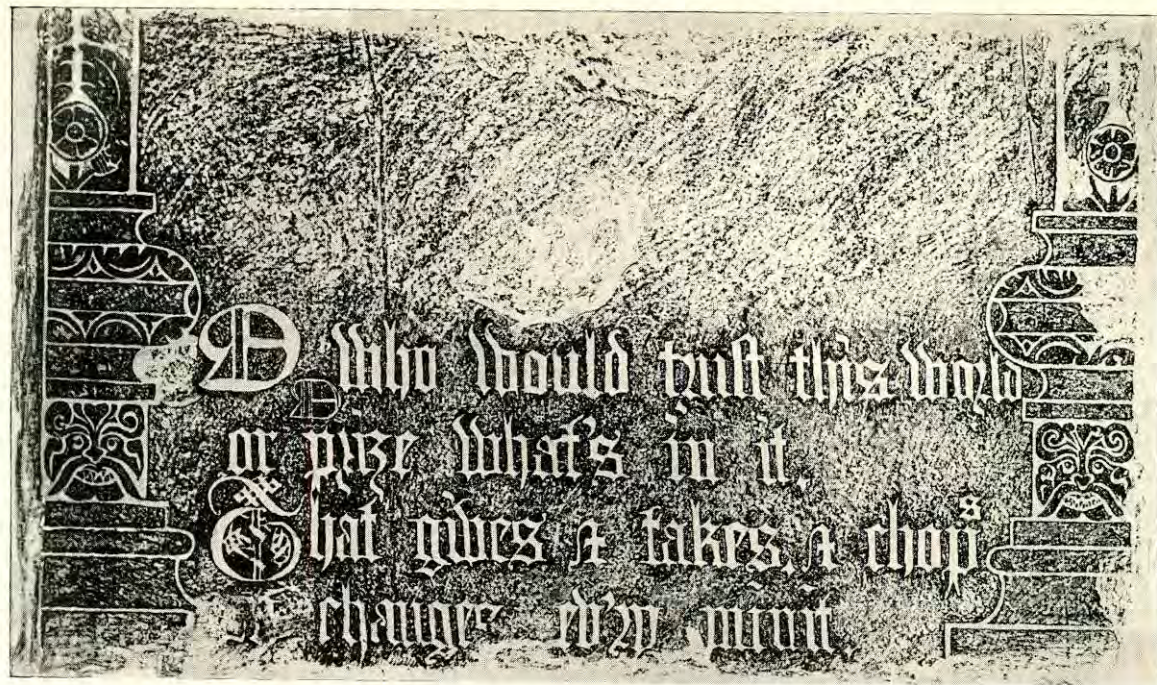 O who would trust this world
or prize what's in it,
That gives & takes, & chops
& changes ev'ry minit.